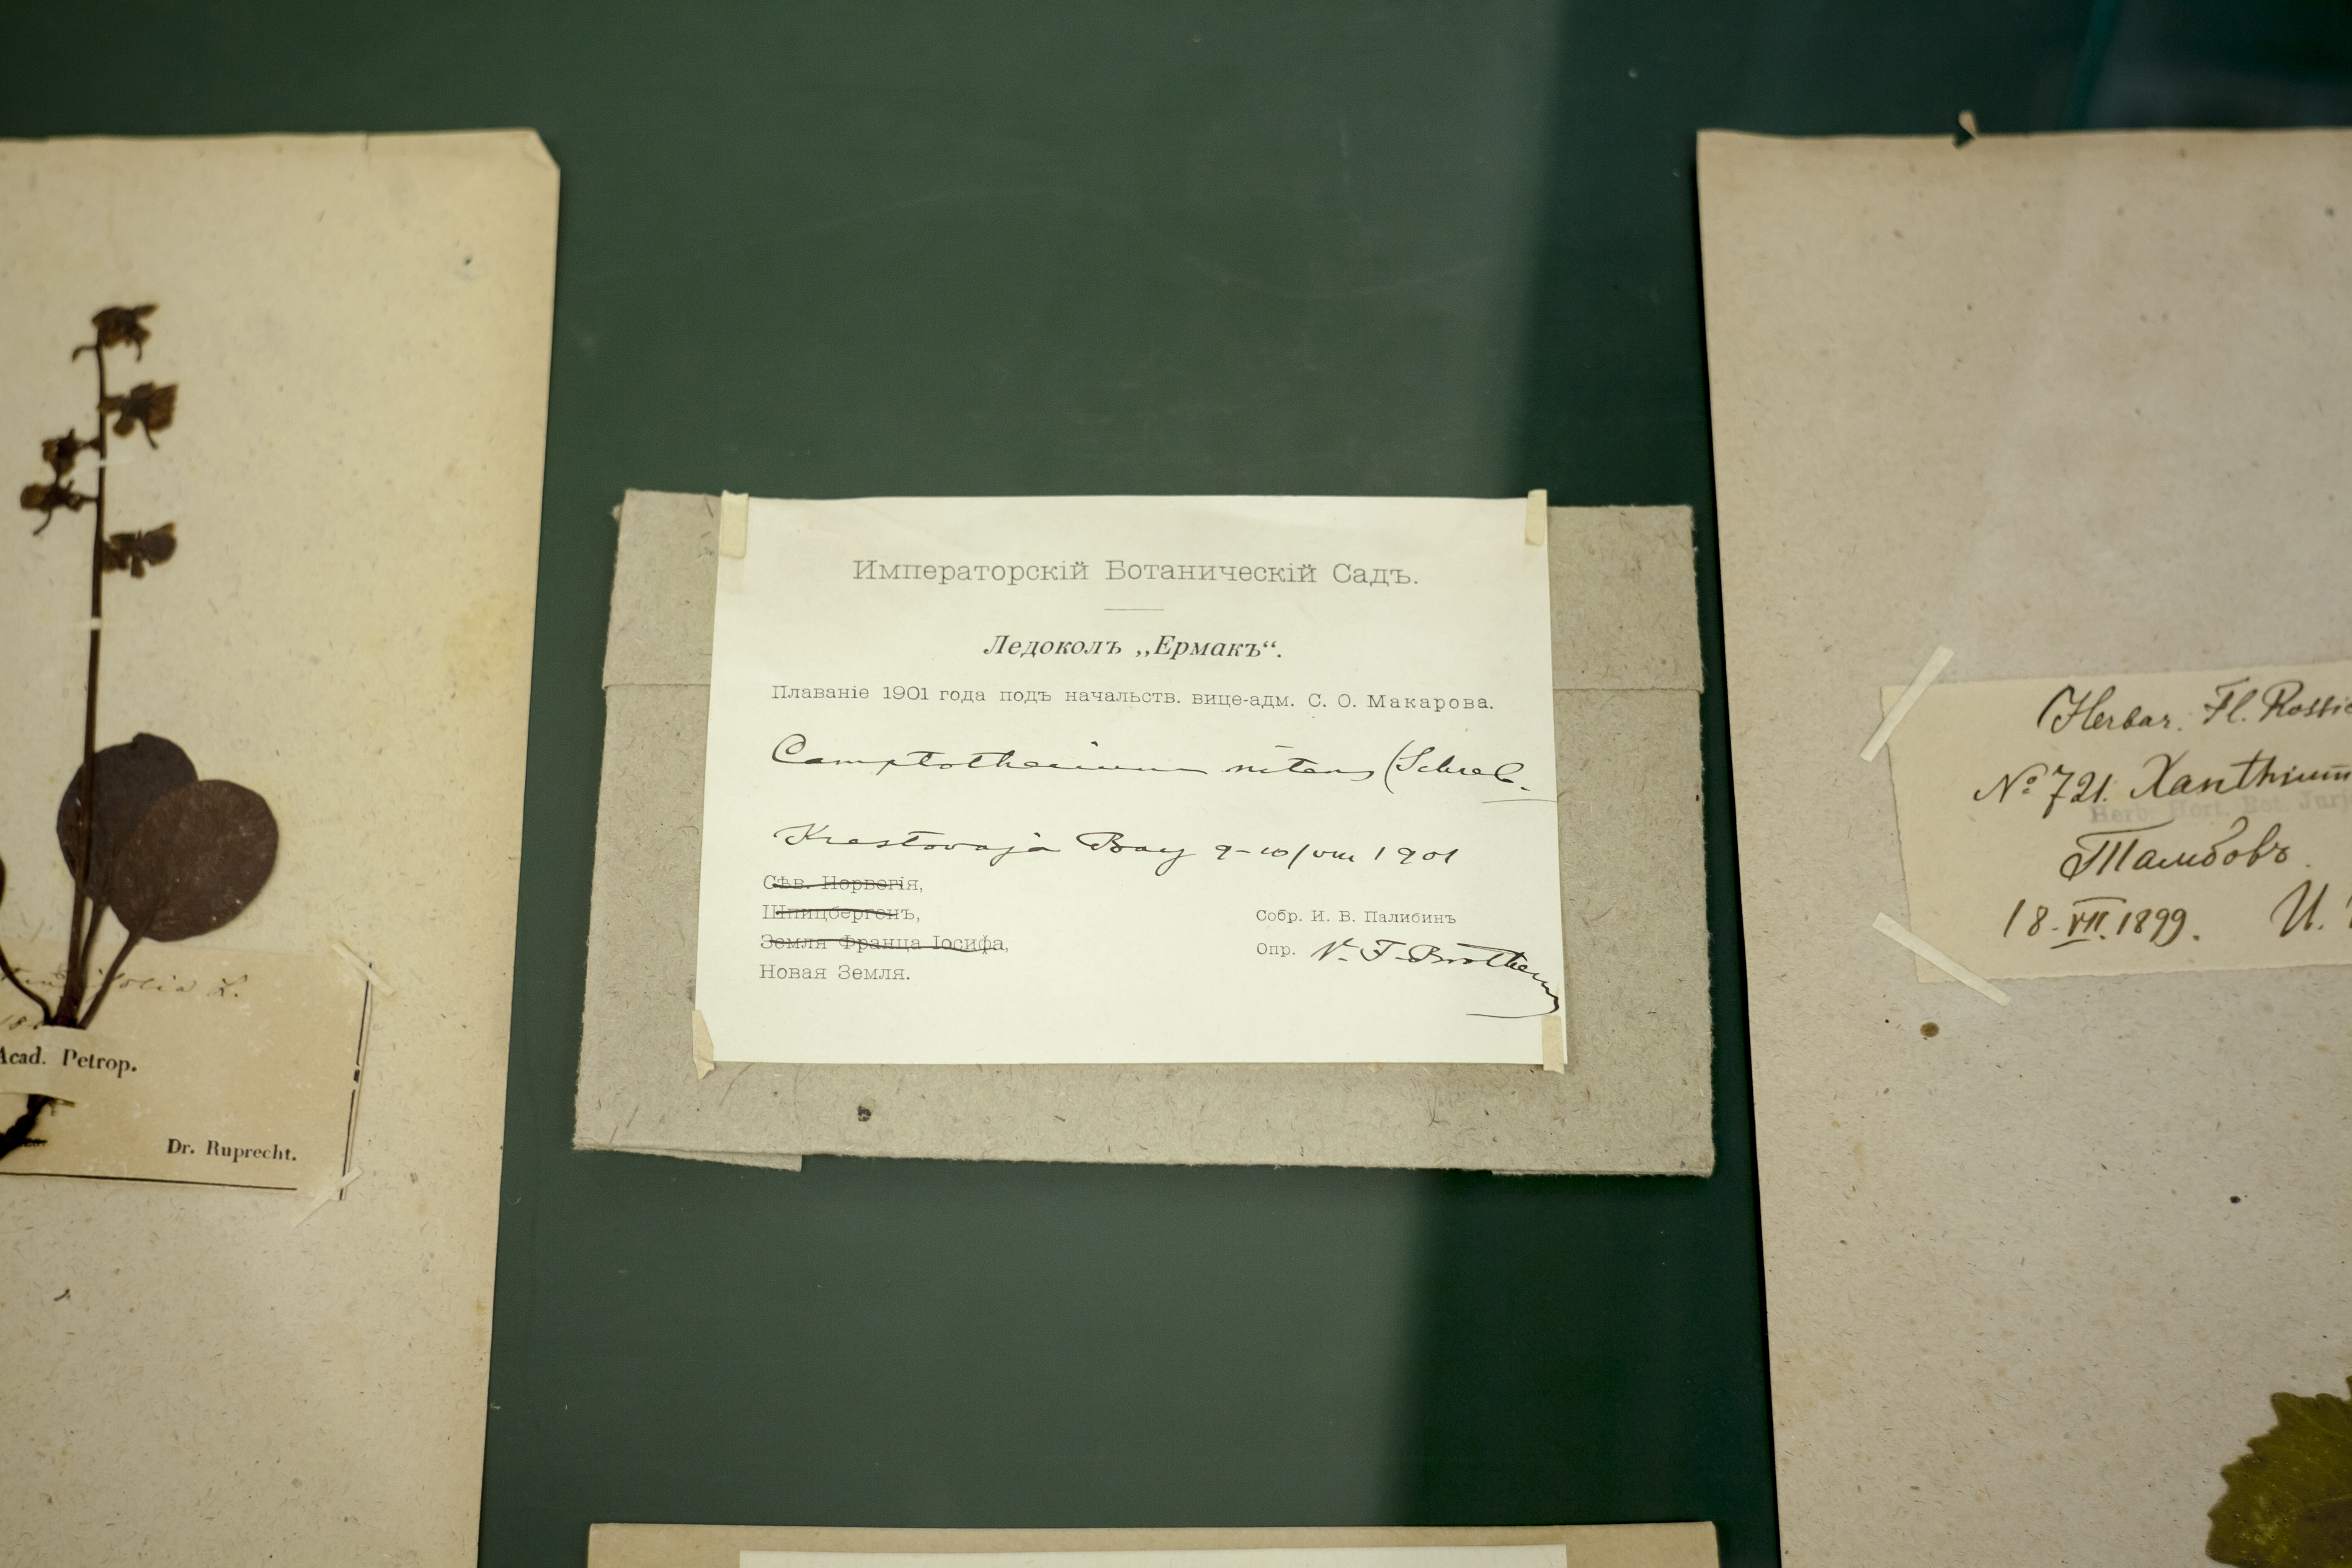 Императорскій Ботаническій Садъ.
Ледоколъ „Ермакъ“.
Плаваніе 1901 года подъ начальств. вице-адм. С. О. Макарова.
Camptothecium nitens (Schreb.
Krestovaja Bay 9-10/VIII 1901
Сѣв. Норвегія,
Шпицбергенъ,
Земля Франца Іосифа,
Новая Земля.
Собр. И. В. Палибинъ
Опр. V. F. Brotherus
folia L.
Acad. Petrop.
Dr. Ruprecht.
Herbar. Fl. Rossic
№ 721. Xanthium
Herb. Hort. Bot. Jur
Тамбовъ.
18.VII.1899. И.